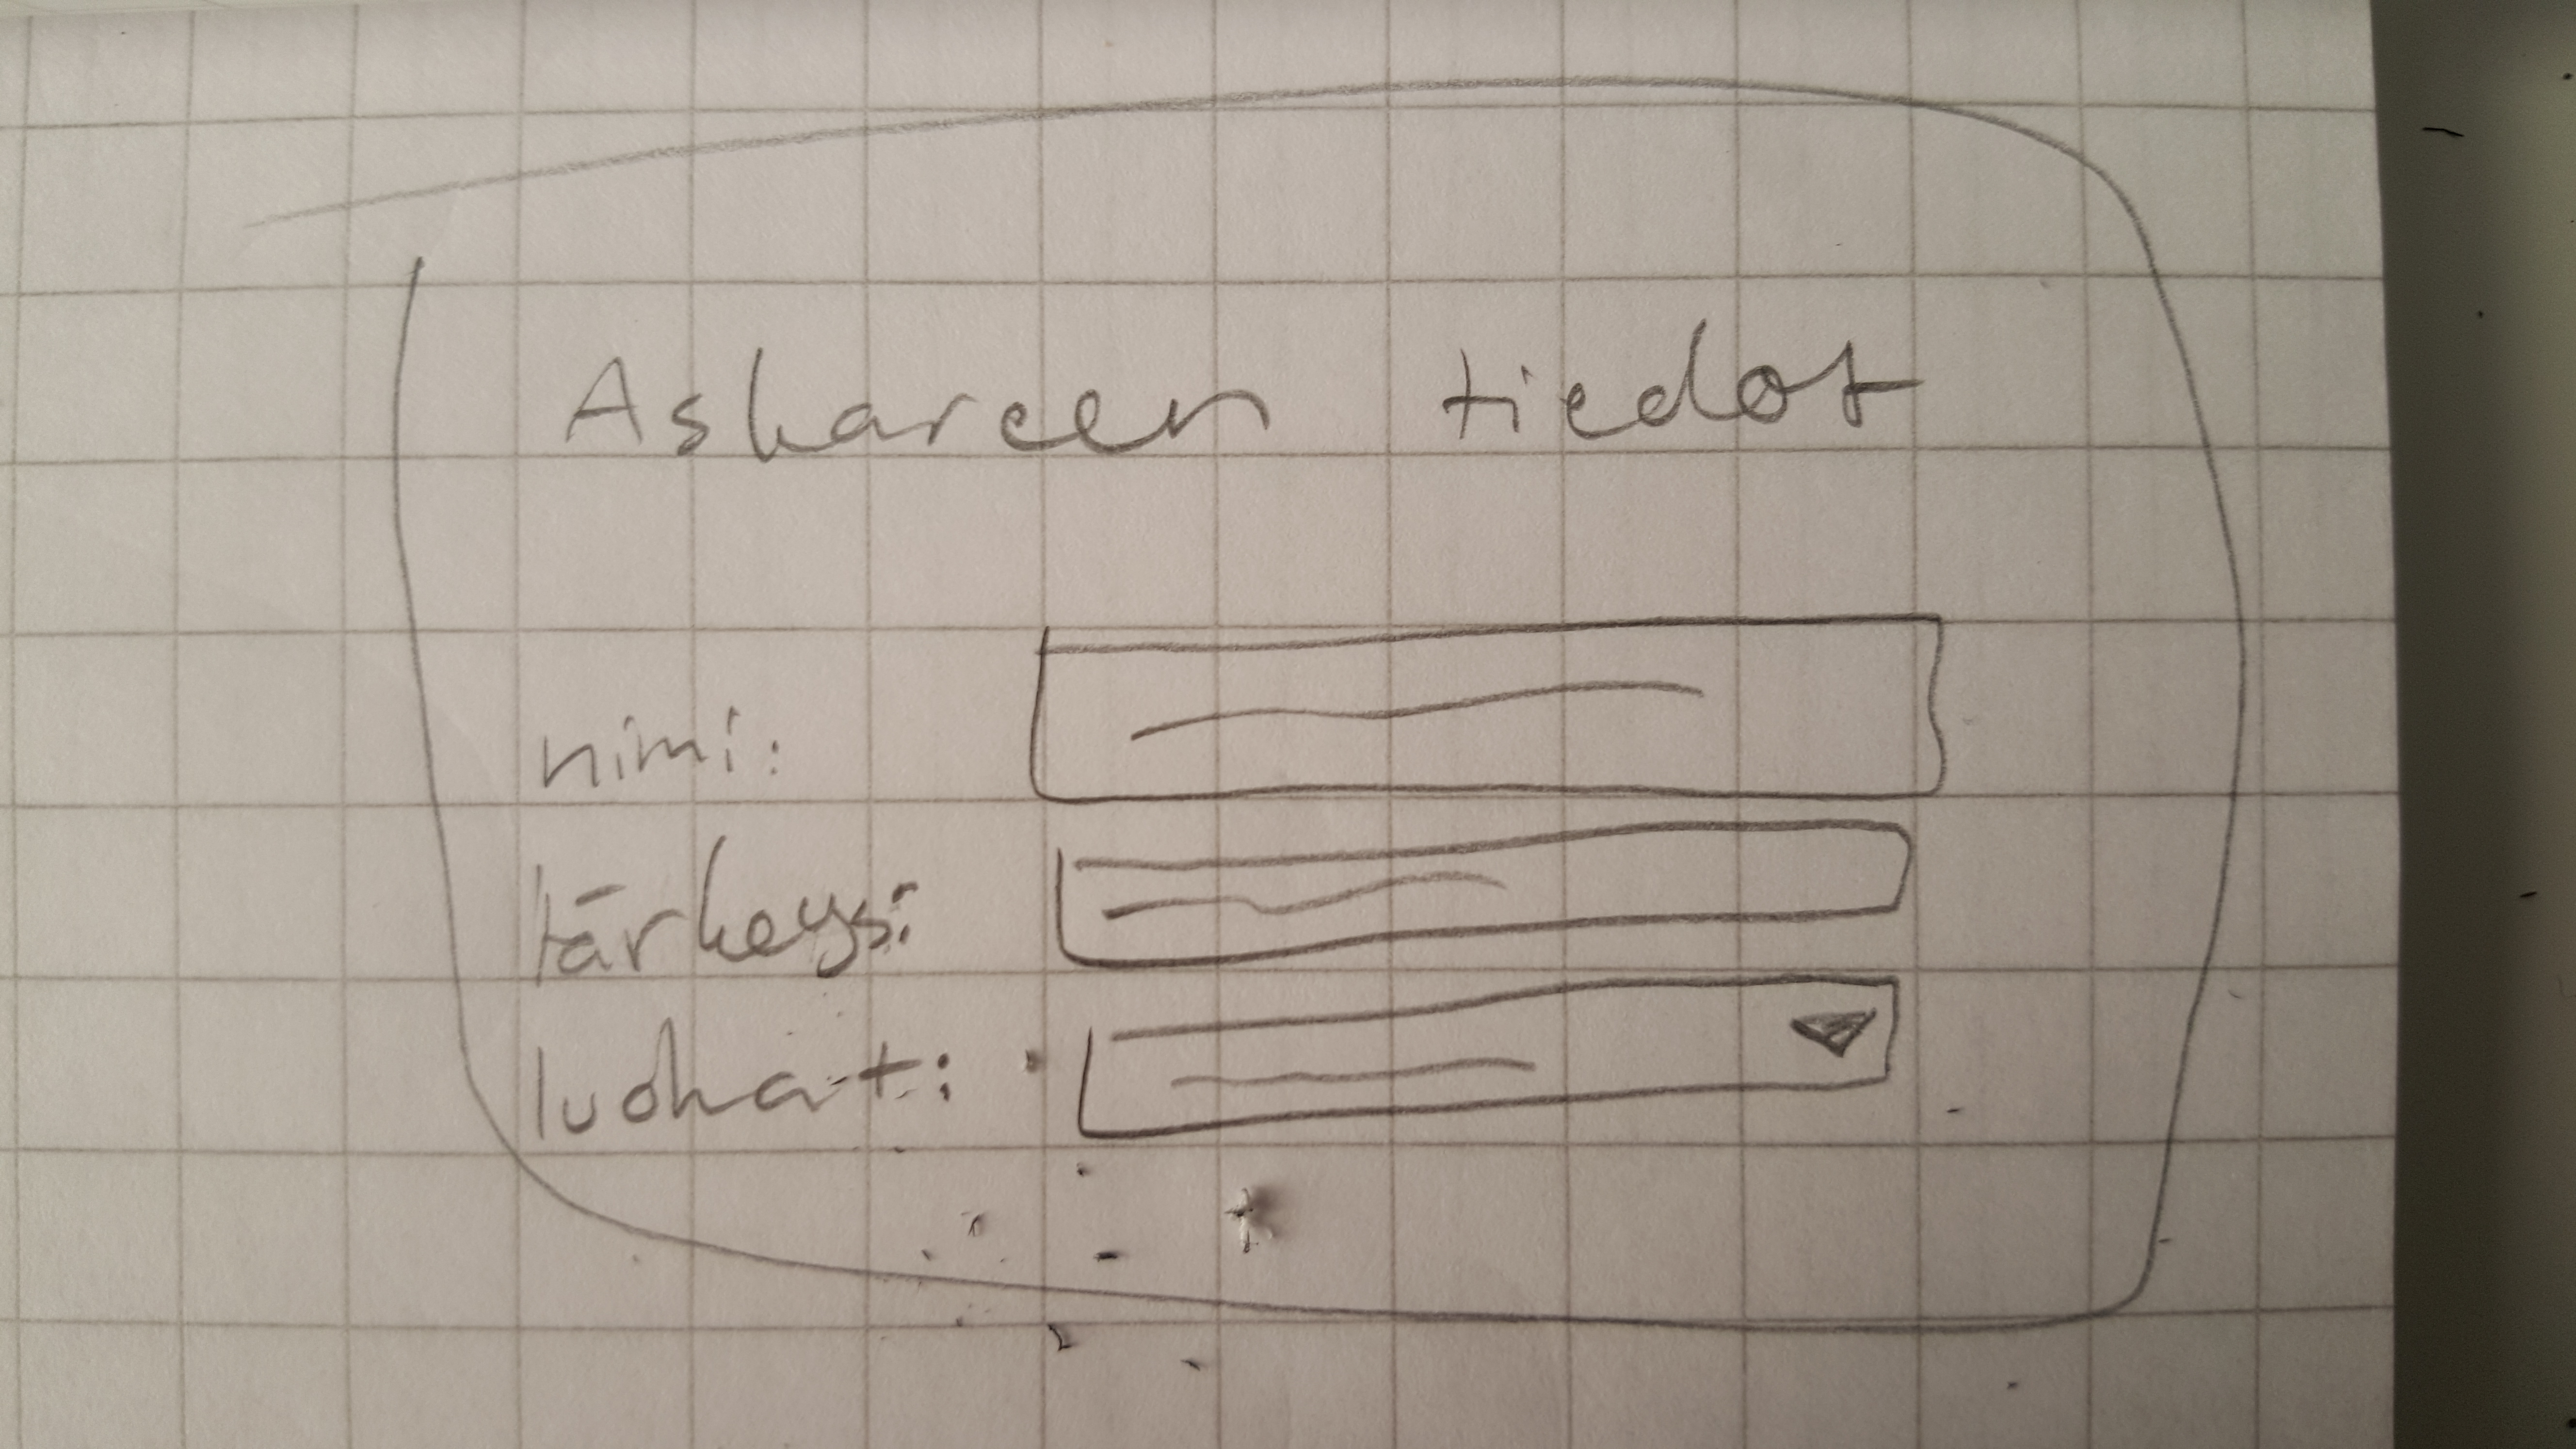 Askareen tiedot
nimi:
tärkeys:
luokat: